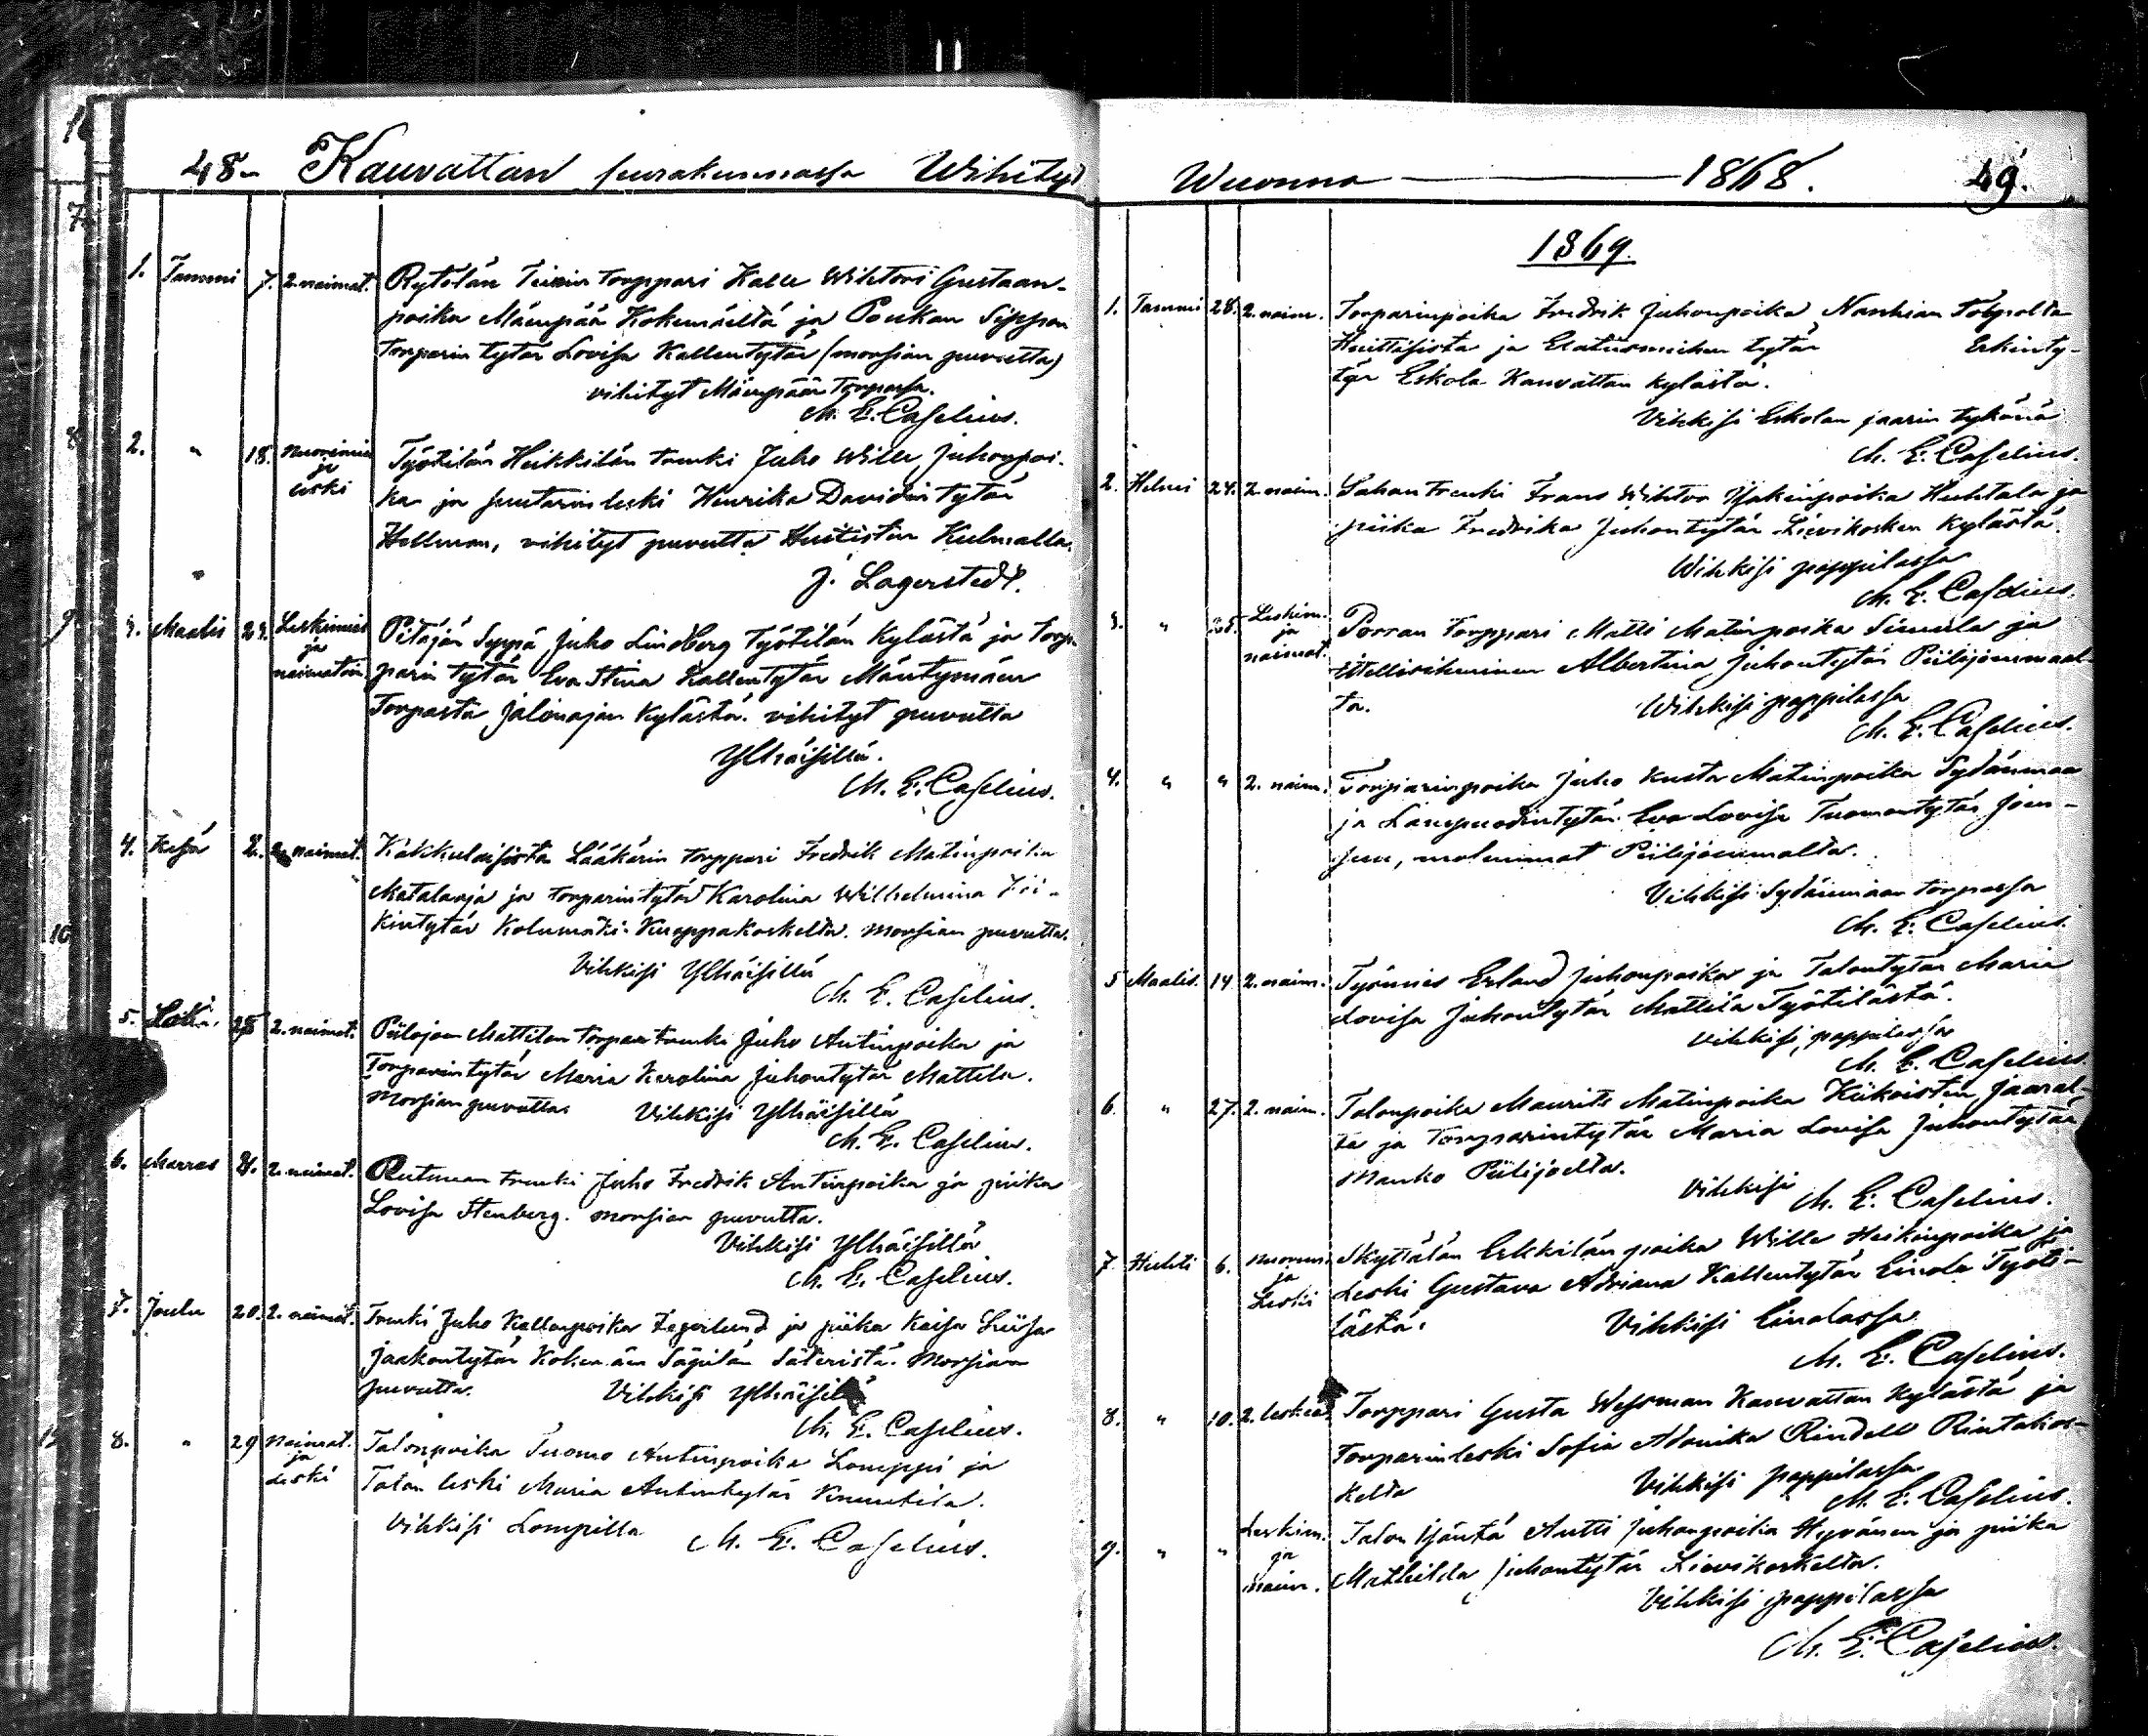 48 - Kauvattan seurakunnassa Wihityt
1. Tammi 7. 2. naimat. Rytölän Teinin torppari Kalle Wihtori Gustaan-
poika Mäenpää Kokemäeltä ja Poukan Sippon
torparin tytär Lovisa Kallentytär (morsian puvutta)
vihityt Mäenpään torpassa.
M. E. Caselius.
2. " 18. nuorimies ja leski Työtilän Heikkilän trenki Juho Wille Juhonpoi-
ka ja suutarin leski Henrika Davidin tytär
Hellman, vihityt puvutta Huitistin Kulmalla.
" J. Lagerstedt.
3. Maalis 29. Leskimies ja naimatoin Pitäjän Seppä Juho Lindberg Työtilän kylästä ja torp-
parin tytär Eva Stina Kallentytär Mäntymäen
torpasta Jalonojan kylästä. vihityt puvutta
Ylhäisillä.
M. E. Caselius.
4. Kesä 2. 2. naimat. Kakkulaisista Lääkärin torppari Fredrik Matinpoika
Matalaoja ja torparintytär Karolina Wilhelmina
kintytär Kolumäki Kuoppakoskelta. morsian puvutta.
Vihkisi Ylhäisillä
M. E. Caselius.
5. Loka. 25 2. naimat. Piilojoen Mattilan torpan trenki Juho Antinpoika ja
Torparintytär Maria Karolina Juhontytär Mattila.
Morsian puvutta. Vihkisi Ylhäisillä
M. E. Caselius.
6. Marras 8. 2. naimat. Rutman trenki Juho Fredrik Antinpoika ja piika
Lovisa Stenberg. morsian puvutta.
Vihkisi Ylhäisillä
M. E. Caselius.
7. Joulu 20. 2. naimat. Trenki Juho Kallenpoika Zegerlund ja piika Kaisa Liisa
Jaakontytär Kokemäen Säpilän Säteristä. Morsian
puvutta. Vihkisi Ylhäisillä
M. E. Caselius.
8. " 29 Naimat. ja Leski Talonpoika Tuomo Antinpoika Lomppi ja
Talon leski Maria Antintytär Knuutila.
Vihkisi Lompilla M. E. Caselius.
Wuonna 1868. 49.
1869.
1. Tammi 28. 2. naim. Torparinpoika Fredrik Juhonpoika Nanhian
Huittisista ja Elatusmiehen tytär Erkinty-
tär Eskola Kauvattan kylästä.
Vihkisi Eskolan jaarin tykönä
M. E. Caselius.
2. Helmi 24. 2. naim. Sahan trenki Frans Wihtor Isakinpoika Huhtala ja
piika Fredrika Juhontytär Lievikosken kylästä.
Wihkisi pappilassa
M. E. Caselius.
3. " 25. Leskim. ja naimat. Porran torppari Matti Matinpoika Simula ja
itellisihminen Albertina Juhontytär Piilijoenmaal-
ta. Wihkisi pappilassa
M. E. Caselius.
4. " " 2. naim. Torparinpoika Juho Kusta Matinpoika Sydänmaa
ja Lampuodintytär Eva Lovisa Tuomontytär Joen-
suu, molemmat Piilijoenmalta.
Vihkisi Sydänmaan torpassa
M. E. Caselius.
5 Maalis. 14 2. naim. Työmies Erland Juhonpoika ja Talontytär Maria
Lovisa Juhontytär Mattila Työtilästä.
Vihkisi pappilassa
M. E. Caselius.
6. " 27. 2. naim. Talonpoika Maurits Matinpoika Kiikoisten Jaaral-
ta ja torpparintytär Maria Lovisa Juhontytär
Manko Piilijoelta.
Vihkisi M. E. Caselius.
7. Huhti 6. Nuorim. ja Leski Skyttälän Erkkilän poika Wille Heikinpoika ja
Leski Gustava Adriana Kallentytär Einola Työti-
lästä. Vihkisi Einolassa
M. E. Caselius.
8. " 10. 2. leskeä Torppari Gusta Wessman Kauvattan kylästä ja
Torparinleski Sofia Adonika Rindell Rintakos-
kelta Vihkisi pappilassa
M. E. Caselius.
9. " " Leskim. ja naim. Talon Isäntä Antti Juhonpoika Hyvönen ja piika
Mathilda Juhontytär Lievikoskelta.
Vihkisi pappilassa
M. E. Caselius.